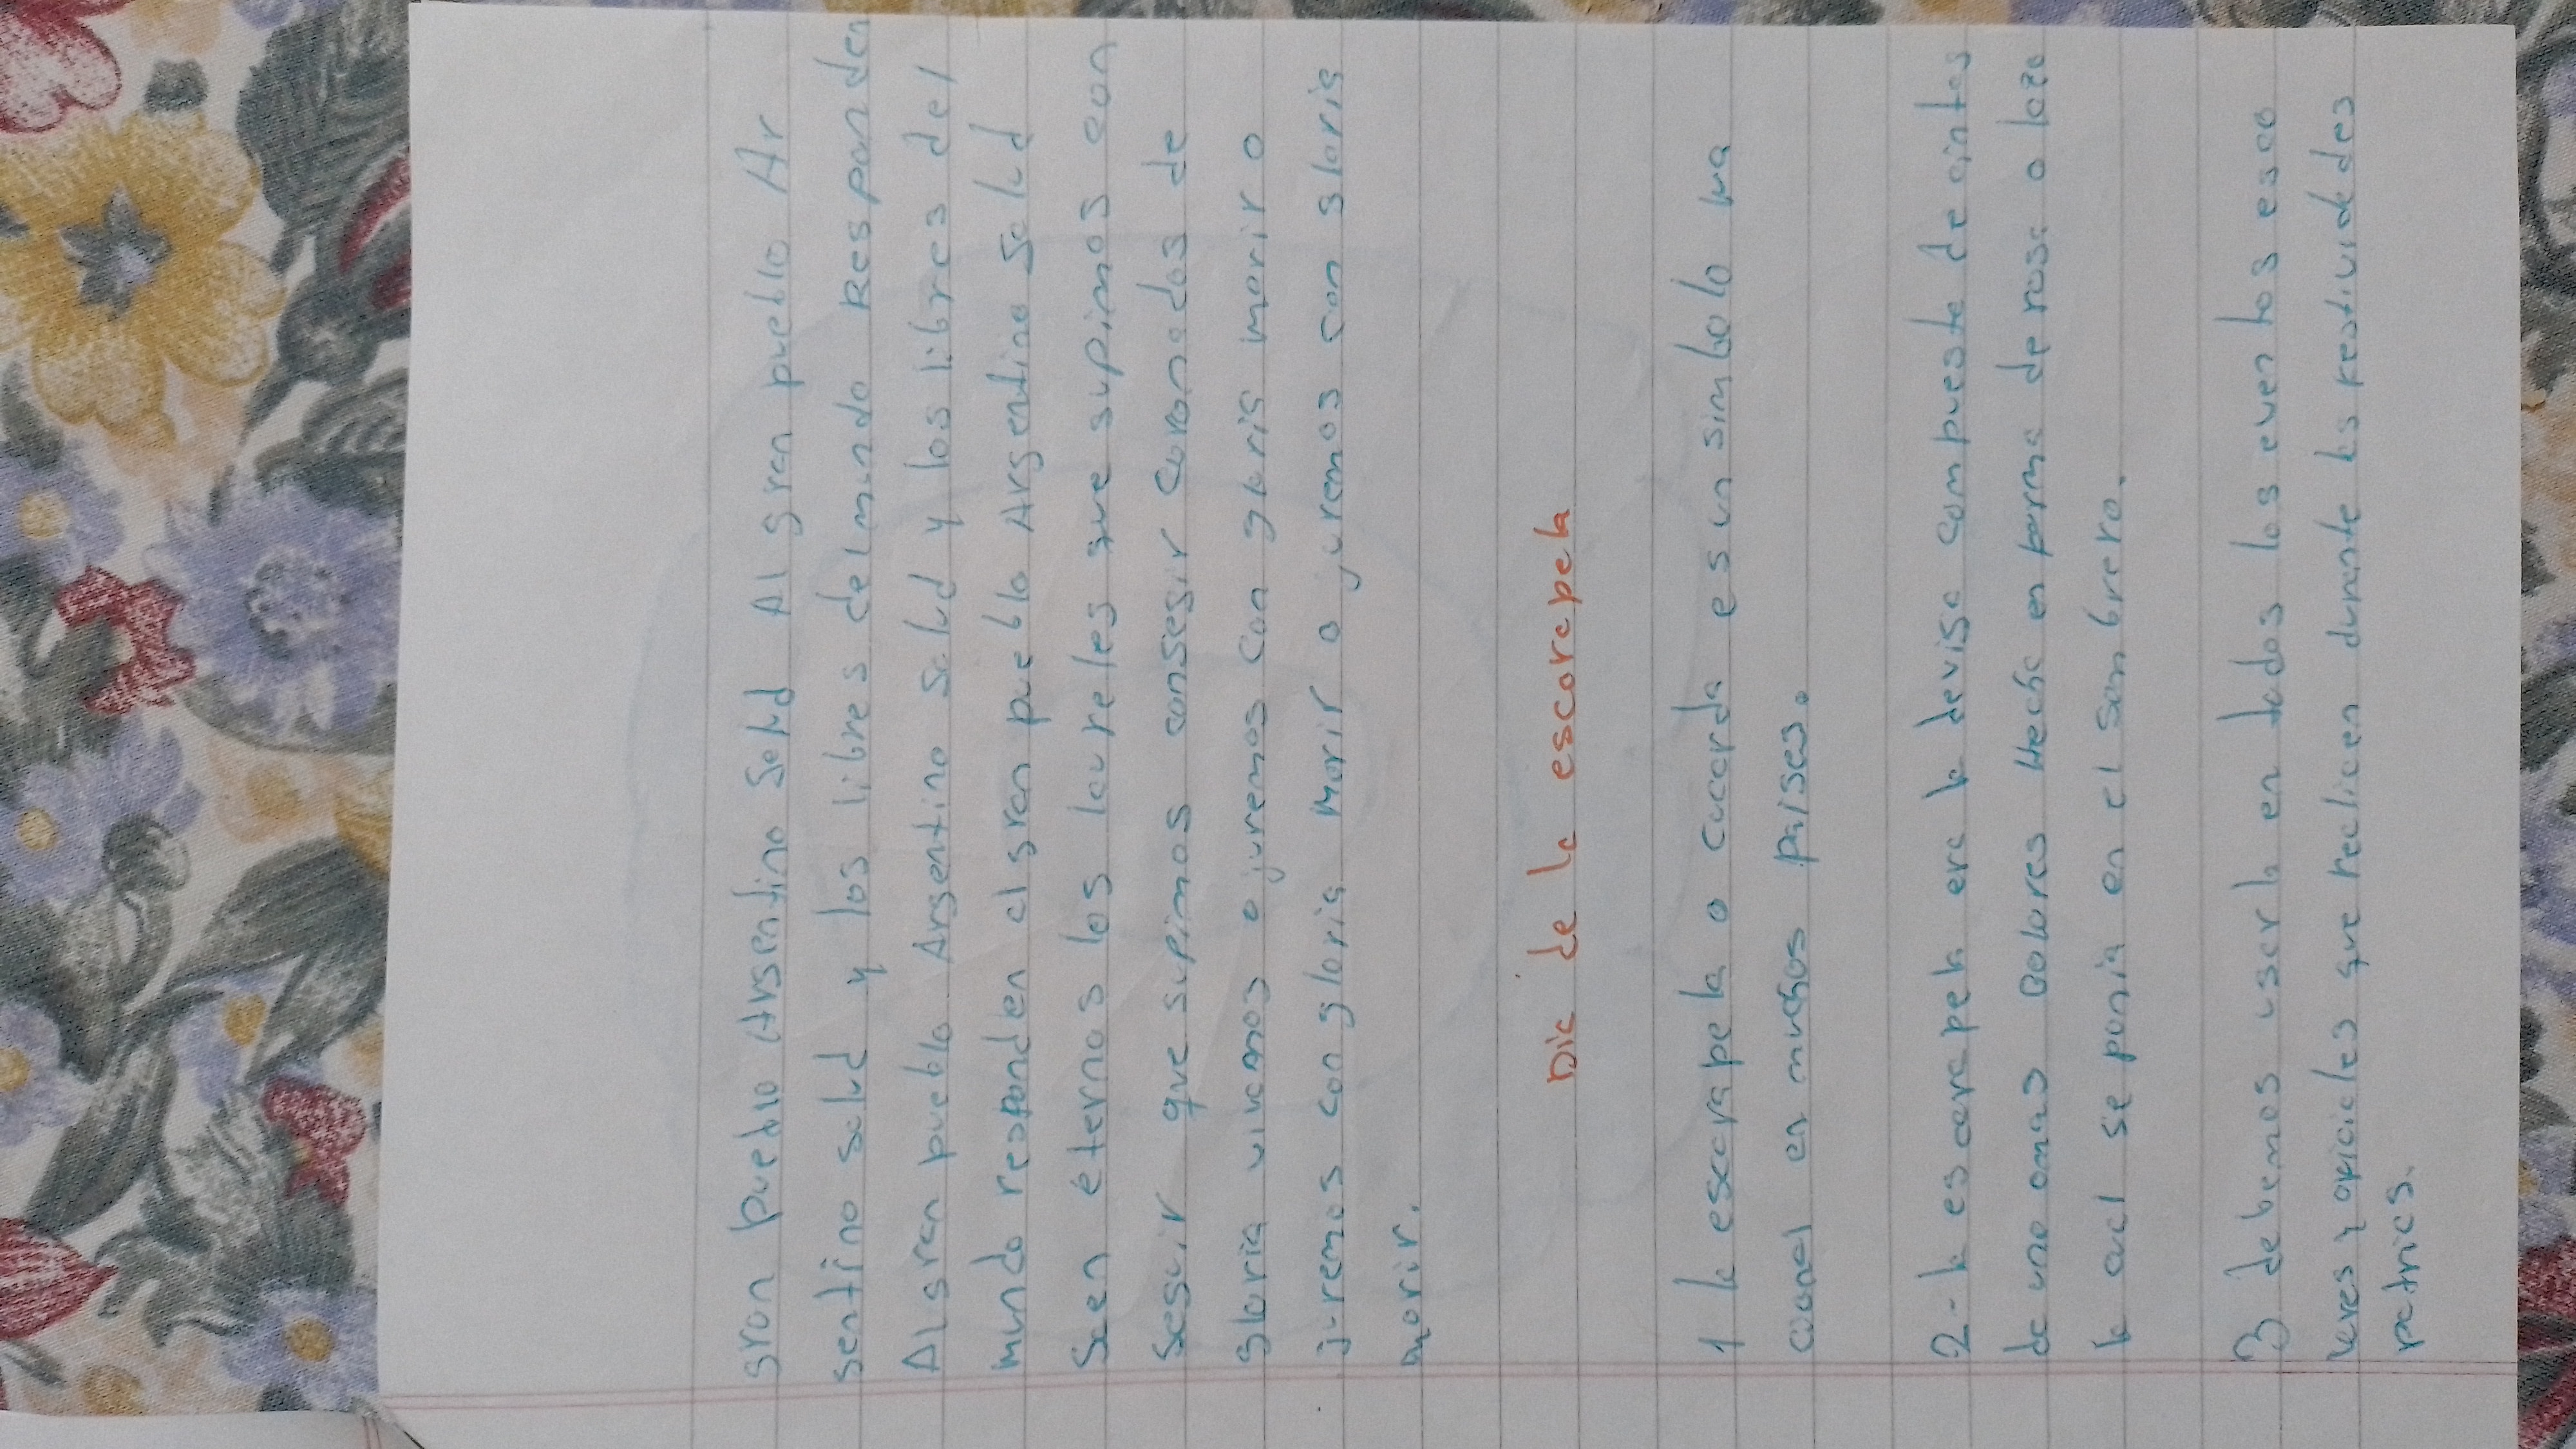 gran pueblo Argentino Salud Al gran pueblo Ar
sentino salud y los libres del mundo Responden
Al gran pueblo Argentino salud y los libres del
mundo responden al gran pueblo Argentino Salud
Sean eternos los laureles que supimos con
seguir que supimos conseguir Coronados de
gloria vivamos o juremos con gloria morir o
juremos con gloria morir o juremos con gloria
morir.
Dia de la escarapela
1 la escarapela o cucarda es un simbolo lua
caonal en muchos paises.
2- la escarapela era la devisa compuesta de cintas
de uno omas colores Hecha en forma de rosa o lazo
la cual se ponia en el sombrero.
3 debemos usarla en todos los eventos esco
lares y oficiales que realicen durante las festividades
patrias.